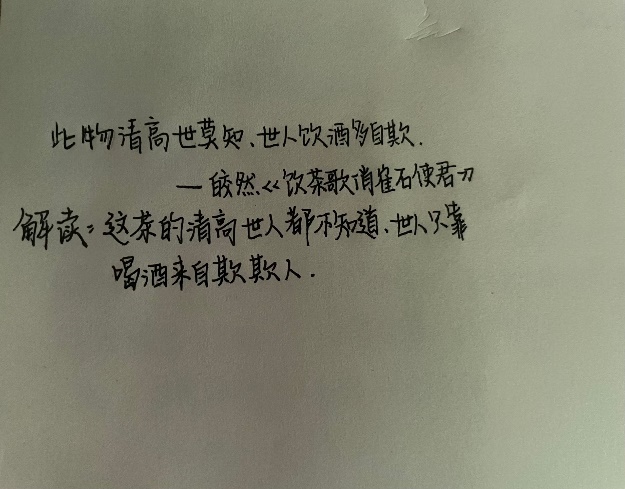 此物清高世莫知、世人饮酒多自欺.
—皎然.《饮茶歌诮崔石使君》
解读:这茶的清高世人都不知道、世人只靠
喝酒来自欺欺人.